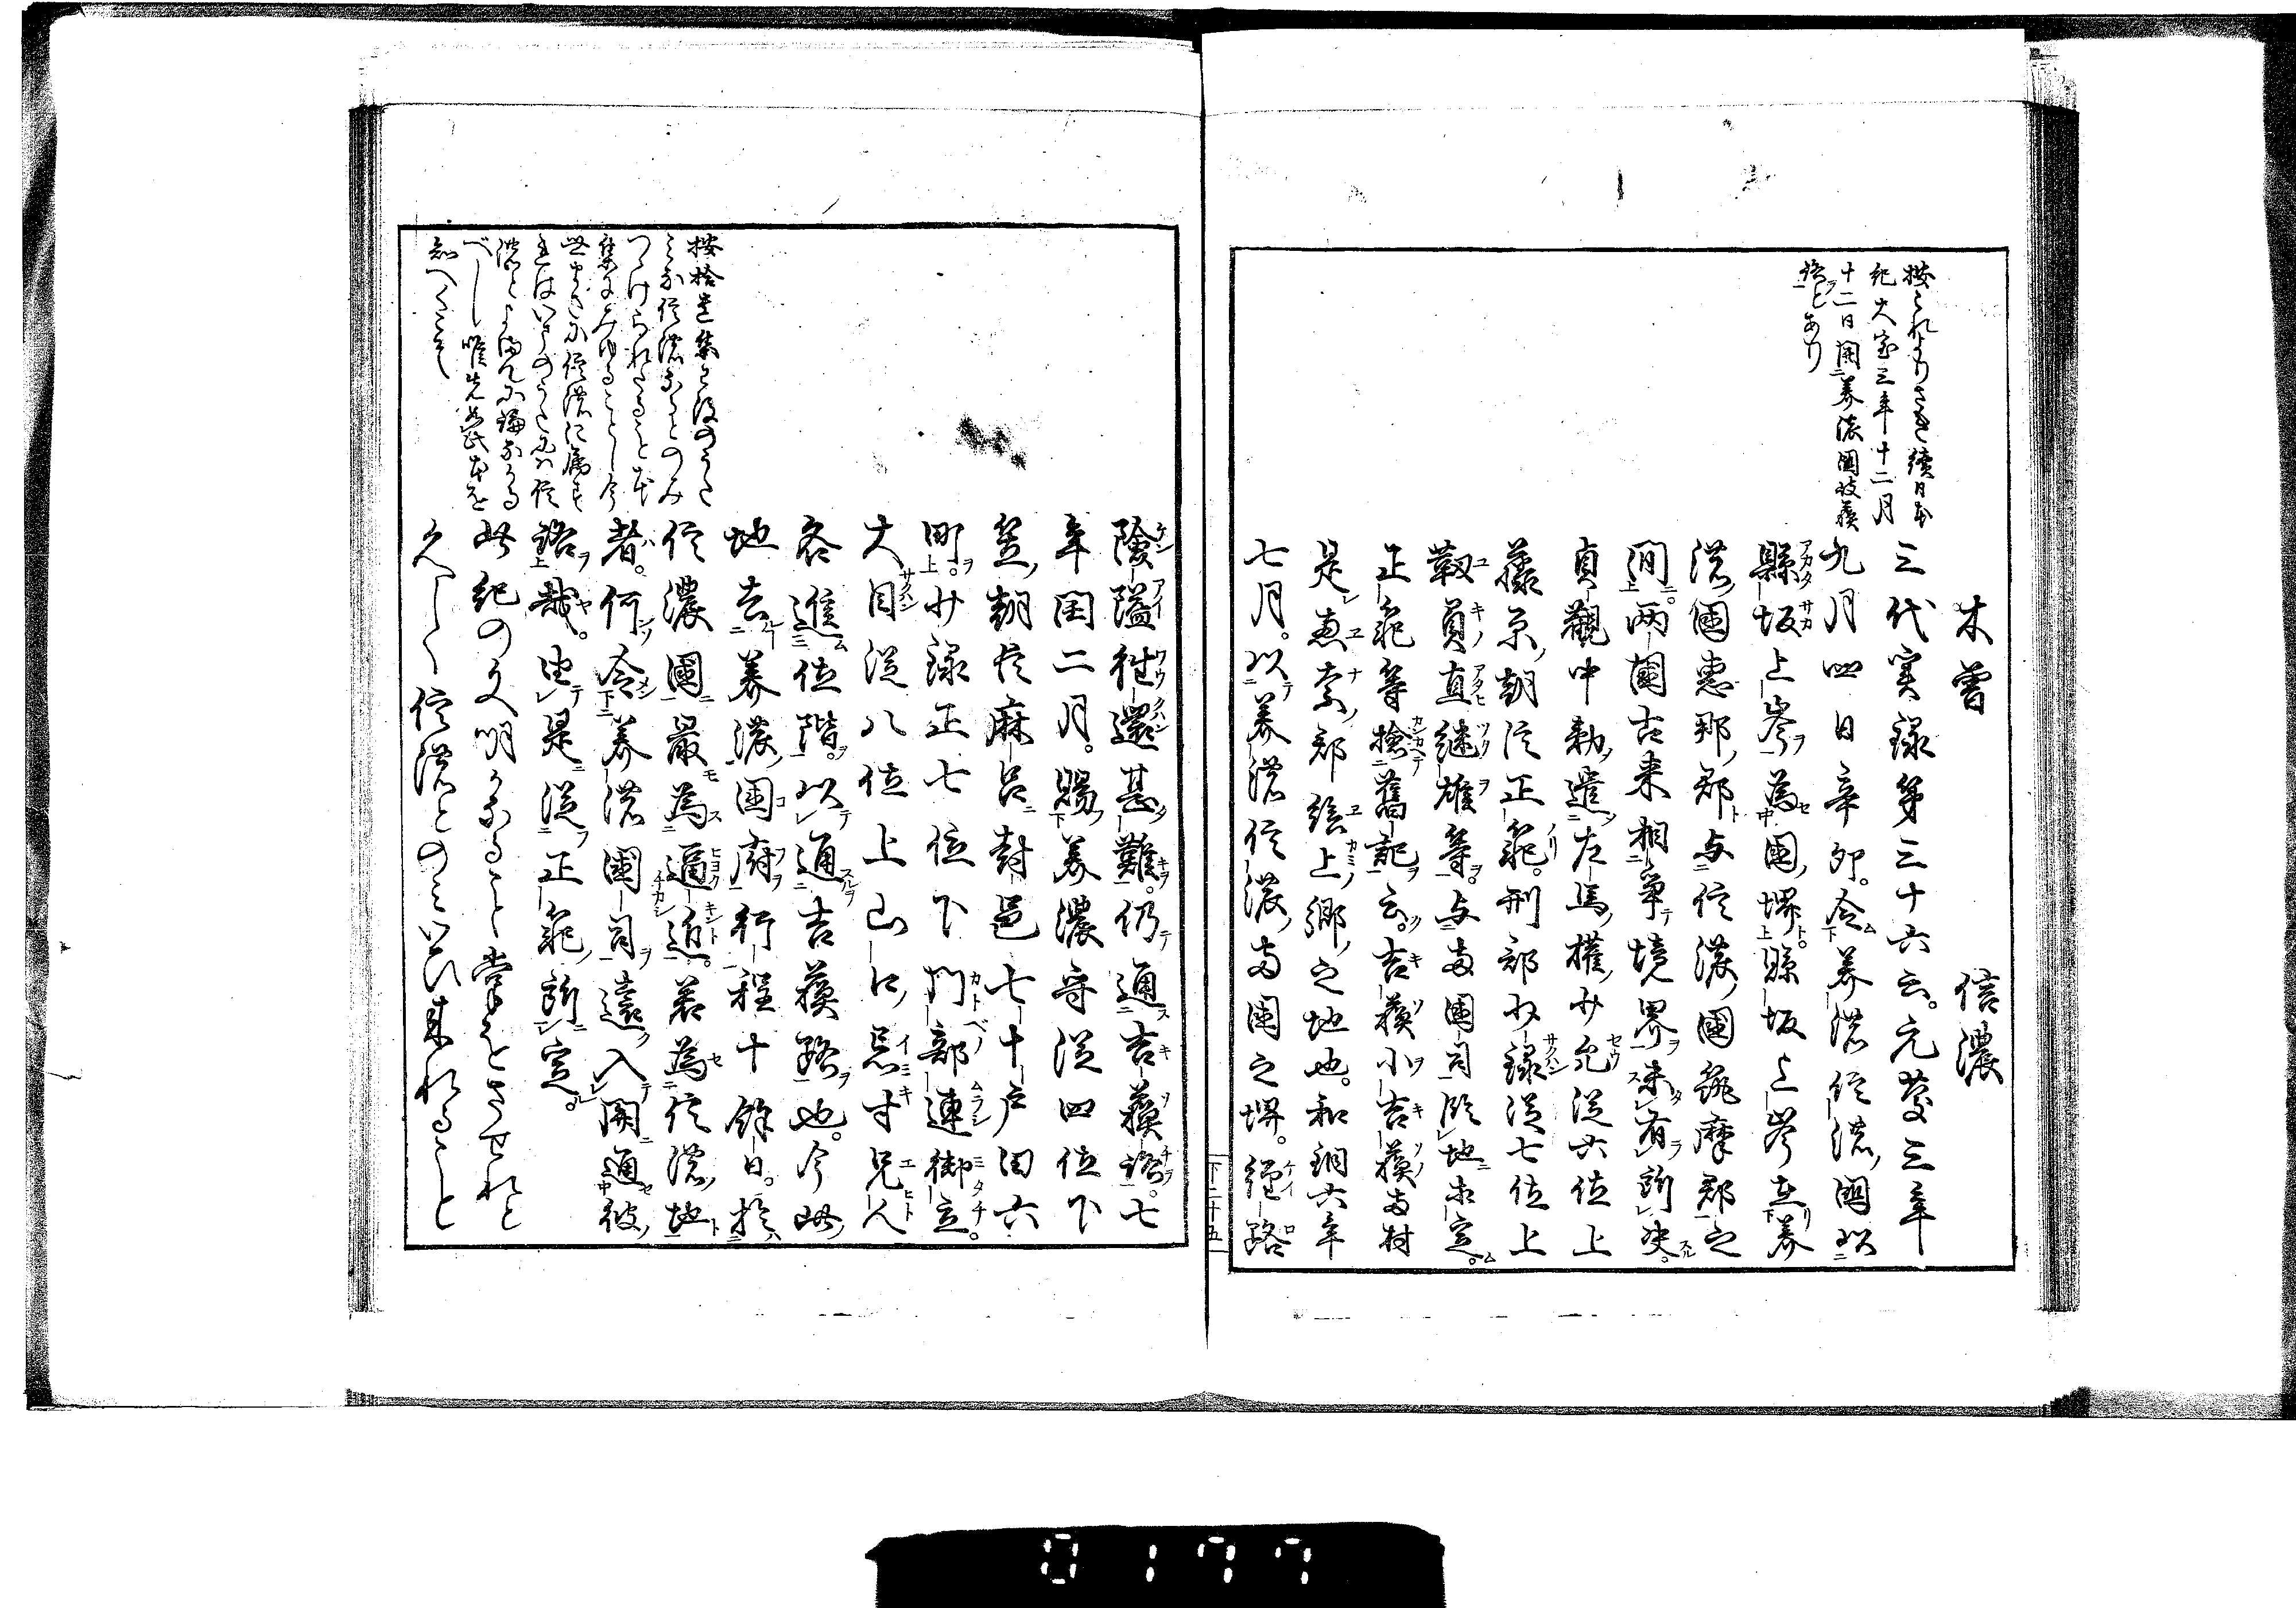 木曽 信濃
三代実録第三十六云。元慶三年
九月四日辛卯。令美濃信濃国以
縣坂上岑為国堺。縣坂上岑在美
濃国恵那郡与信濃国筑摩郡之
間。両国古来相争境界未有所決。
貞観中勅遣左馬権少允従六位上
藤原朝臣正範。刑部少録従七位上
靱負直継雄等。与両国司臨地相定。
正範等検舊記云。吉蘇小吉蘇両村
是恵奈郡絵上郷之地也。和銅六年
七月。以美濃信濃両国之堺。径路
按これよりさき続日本
紀大宝三年十二月
十二日開美濃国岐蘇
路とあり
下二十五
険隘往還甚難。仍通吉蘇路。七
年閏二月。賜美濃守従四位下
笠朝臣麻呂封邑七十戸田六
町。少録正七位下門部連御立。
大目従八位上山口忌寸兄人
各進位階。以通吉蘇路也。今此
地去美濃国府行程十余日。於
信濃国最為逼近。若為信濃地
者。何令美濃国司遠入開通彼
路哉。由是従正範所定。
此紀の文明らかなること掌をさせれと
久しく信濃とのミいひ来れること
按拾遺集已後のうた
みな信濃
つけられたること
集にみゆることし今